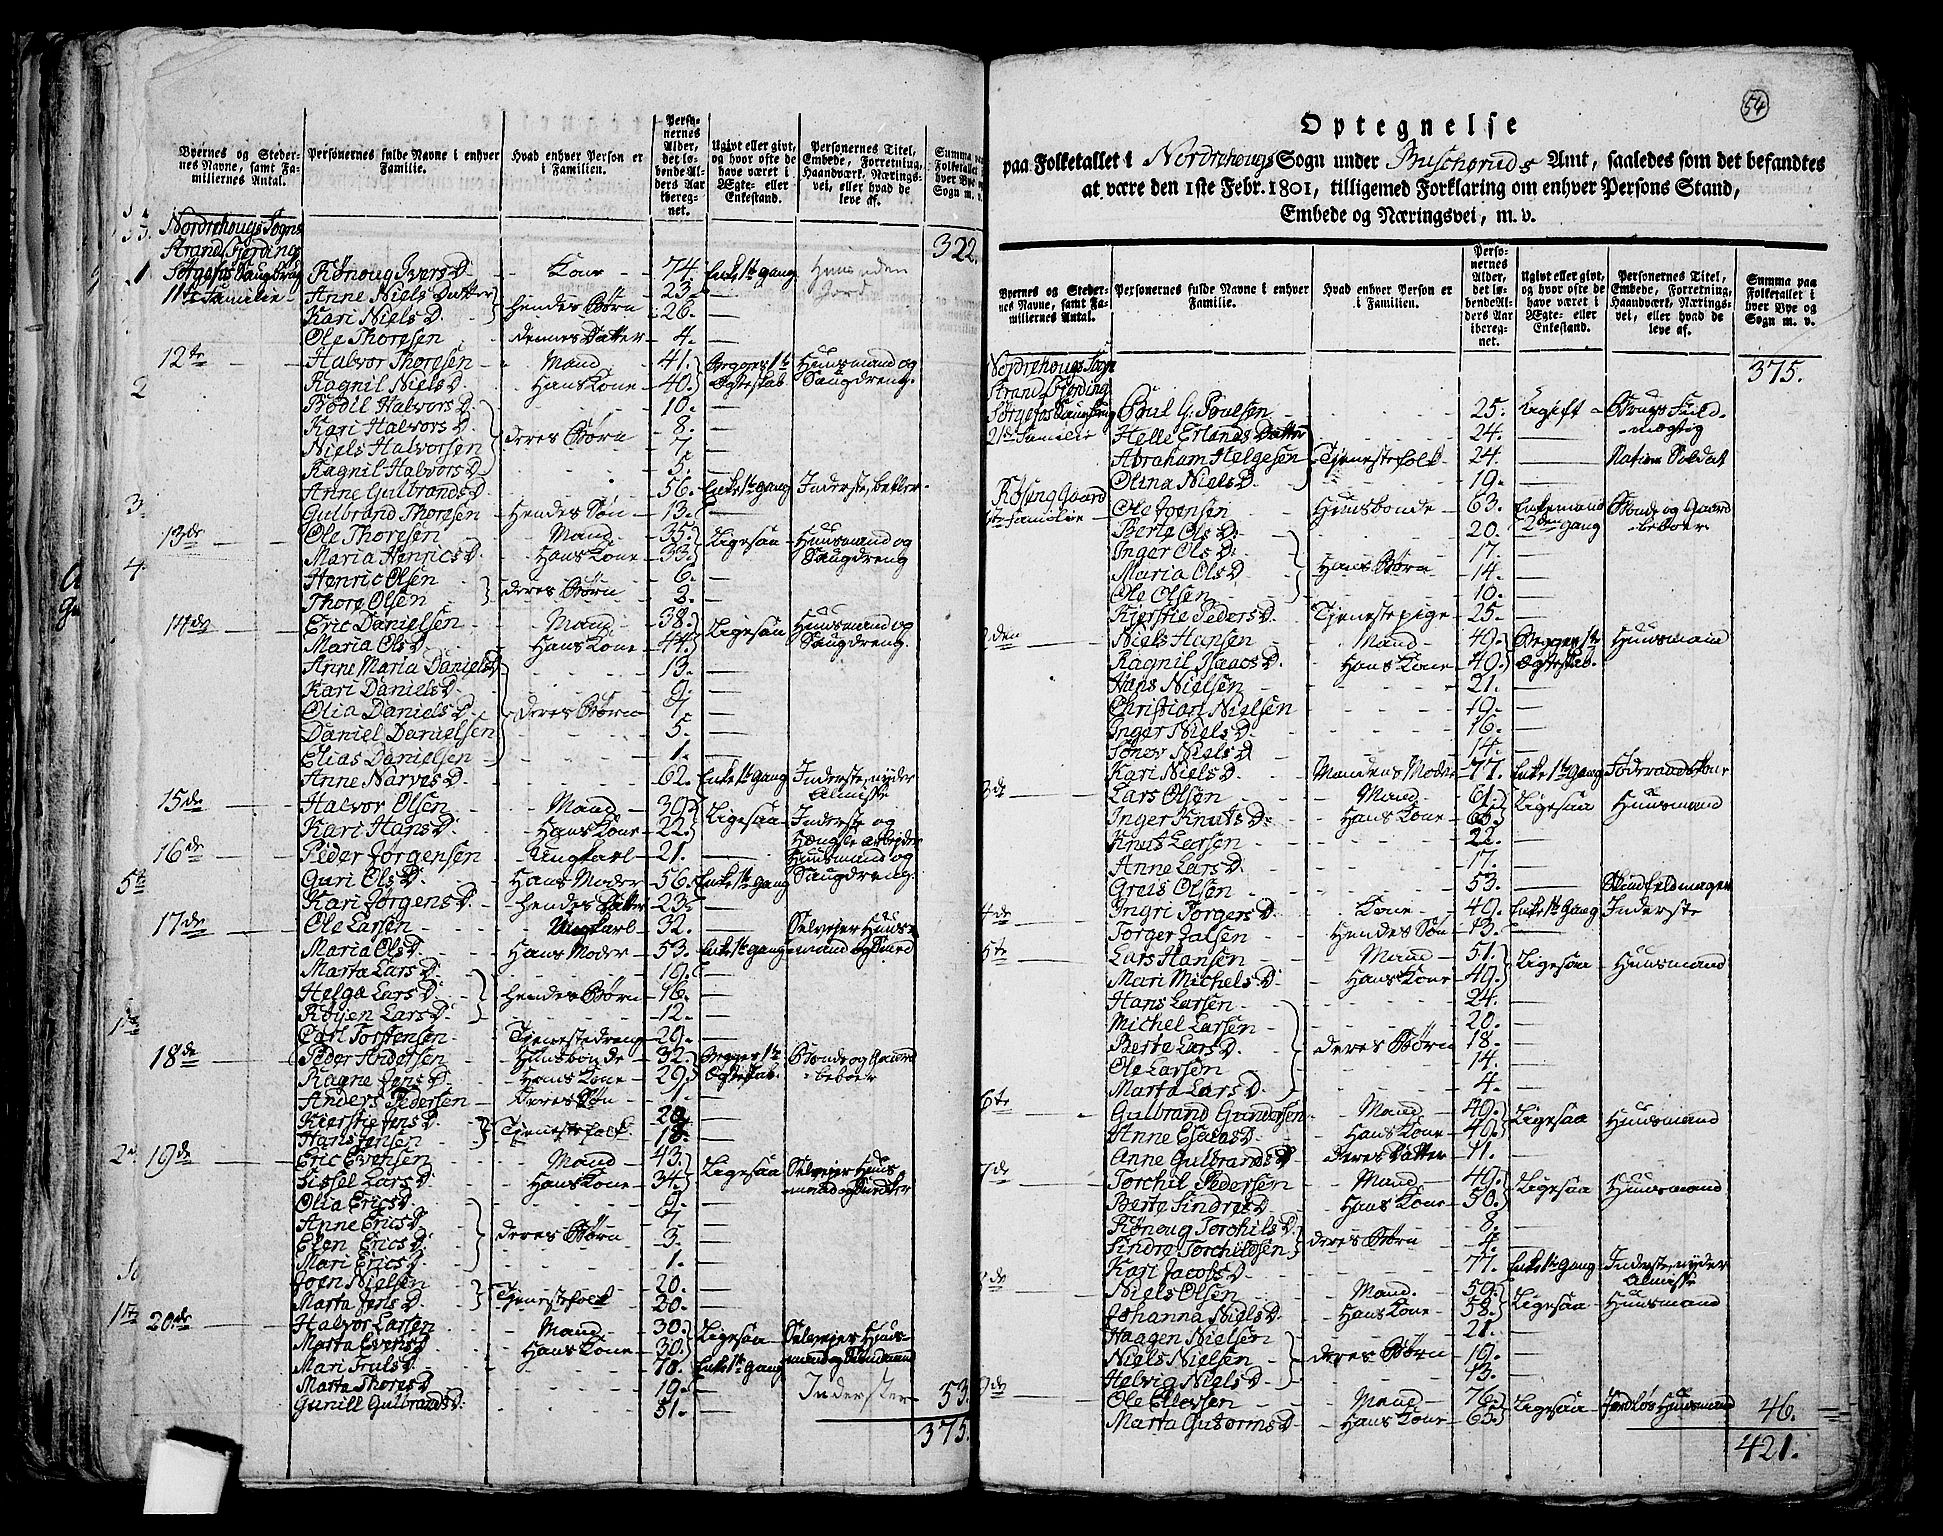 Byernes og Steder-
nes Navne, samt Fa-
miliernes Antal.
Personernes fulde Navne i enhver
Familie.
Hvad enhver Person er
i Familien.
Perso-
nernes
Alder,
det lø-
bende Al-
ders Aar
ibereg-
net.
Ugivt eller givt,
og hvor ofte de
have været i
Ægte- eller
Enkestand.
Personernes Titel,
Embede, Forretning,
Haandværk, Nærings-
vei, eller hvad de
leve af.
Summa paa
Folketallet i
hver Bye og
Sogn m. v.
Nordrehougs Sogn
Strand Fierding 322.
Rønoug Ivers D. Kone 74. Enke 1te gang
11te Familie Anne Niels Datter 23
Kari Niels D. hendes Børn 26.
Ole Thoresen dennes Datter 4.
12te Halvor Thoresen Mand 41. Begges 1te Huusmand og
Ragnil Niels D. Hans Kone 40. Ægteskab Saugdreng
Bodil Halvors D. 10.
Kari Halvors D. 8.
Niels Halvorsen deres Børn 7.
Ragnil Halvors D. 5.
Anne Gulbrands D. 56. Enke 1te gang Inderste, betler
Gulbrand Thoresen Hendes Søn 13.
13de Ole Thoresen Mand 35. Ligesaa Huusmand og
Maria Henrics D. Hans Kone 33. Saugdreng
Henric Olsen 6.
Thore Olsen deres Børn 2.
14de Eric Danielsen Mand 38. Ligesaa Huusmand og
Maria Ols D. Hans Kone 44. Saugdreng.
Anne Maria Daniels D. 13.
Kari Daniels D. 9.
Olia Daniels D. deres Børn 7.
Daniel Danielsen 5.
Elias Danielsen 1.
Anne Narves D. 62. Enke 1te gang Inderste, nyder
Almisse
15de Halvor Olsen Mand 30. Ligesaa Inderste og
Kari Hans D. Hans Kone 22.
16de Peder Jørgensen Ungkarl 21. Huusmand og
Guri Ols D. Hans Moder 56. Enke 1te gang Saugdreng.
Kari Jørgens D. hendes Datter 23.
17de Ole Larsen Ungkarl 32. Selvejer Huus-
Maria Ols D. Hans Moder 53. Enke 1te gang
Marta Lars D. 19.
Helga Lars D. hendes Børn 16.
Røyen Lars D. 12.
Carl Torstensen Tjenestedreng 29.
18de Peder Andersen Huusbonde 32. Begges 1te Bonde og Gaard
Ragne Jens D. Hans Kone 29. Ægteskab. beboer
Anders Pedersen Deres Søn 1.
Kierstie Jens D. 20.
Hans Jensen Tjenestefolk 18.
19de Eric Evensen Mand 43. Ligesaa Selvejer Huus
Sissel Lars D. Hans Kone 34.
Olia Erics D. 9.
Anne Erics D. 7.
Elen Erics D. deres Børn 3.
Mari Erics D. 1.
Joen Nielsen 20.
Marta Jens D. Tjenestefolk 30.
20de Halvor Larsen Mand 30. Ligesaa Selvejer Huus-
Marta Evens D. Hans Kone 30.
Mari Truls D. 70. Enke 1te gang
Marta Thores D. 19. Inderster 53.
Gunill Gulbrands D. 51.
375.
54
Optegnelse
paa Folketallet i Nordrehougs Sogn under Buscheruds Amt, saaledes som det befandtes
at være den 1ste Febr. 1801, tilligemed Forklaring om enhver Persons Stand,
Embede og Næringsvei, m. v.
Byernes og Steder-
nes Navne, samt Fa-
miliernes Antal.
Personernes fulde Navne i enhver
Familie.
Hvad enhver Person er
i Familien.
Perso-
nernes
Alder,
det lø-
bende Al-
ders Aar
iberegnet.
Ugivt eller givt,
og hvor ofte de
have været i
Ægte- eller
Enkestand.
Personernes Titel,
Embede, Forretning,
Haandværk, Nærings-
vei, eller hvad de
leve af.
Summa paa
Folketallet i
hver Bye og
Sogn m. v.
Nordrehougs Sogn 375.
Strand Fierding
Poul G: Poulsen 25. Ugift Brugs Fuld-
21de Familie Helle Erlands Datter 24. mægtig
Abraham Helgesen Tjenestefolk 24. Nation Soldat
Olina Niels D. 19.
Røseng Gaard Ole Joensen Huusbonde 63. Enkemand Bonde og Gaard
1te Familie Berte Ols D. 20. 2den gang beboer
Inger Ols D. 17.
Maria Ols D. Hans Børn 14.
Ole Olsen 10.
Kjerstie Peders D. Tjenestepige 25.
2den Niels Hansen Mand 49. Begges 1te Huusmand
Ragnil Isaacs D. Hans Kone 40. Ægteskab.
Hans Nielsen 21.
Christian Nielsen 19.
Inger Niels D. 16.
Niels D. 14.
Kari Niels D. Mandens Moder 77. Enke 1te Gang Føderaadskone
3de Lars Olsen Mand 61. Ligesaa Huusmand
Inger Knuts D. Hans Kone
Knut Larsen 22.
Anne Lars D. 17.
Greis Olsen 53. Skindfeldmager
4de Ingri Torgers D. Kone 49. Enke 1te Gang Inderste
Torger Jalsen Hendes Søn 13.
5te Lars Hansen Mand 51. Ligesaa Huusmand
Mari Michels D. Hans Kone 49.
Hans Larsen 24.
Michel Larsen 20.
Berte Lars D. deres Børn 18.
Ole Larsen 14.
Marta Lars D. 4.
6te Gulbrand Gundersen Mand 49. Ligesaa Huusmand
Anne Esaias D. Hans Kone 49.
Anne Gulbrands D. Deres Datter 11.
7de Torchil Pedersen Mand 49. Ligesaa Huusmand
Berte Sindres D. Hans Kone 50.
Rønoug Torchils D. 8.
Sindre Torchildsen deres Børn 4.
Kari Jacobs D. 77. Enke 1te Gang Inderste, nyder
Almisse
Niels Olsen Mand. 59. Ligesaa Huusmand
Johanna Niels D. Hans Kone 58.
Haagen Nielsen 21.
Niels Nielsen deres Børn 19.
Helvig Niels D. 13.
9de Ole Ellevsen Mand 76. Ligesaa Jordløs Huusmand 46.
Marta Gutorms D. Hans Kone 65.
421.